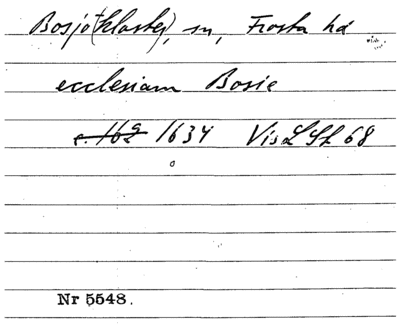 Bosjö(kloster), sn, Frosta hd
ecclesiam Bosie
1634 Vis L Sk 68
Nr 5548.